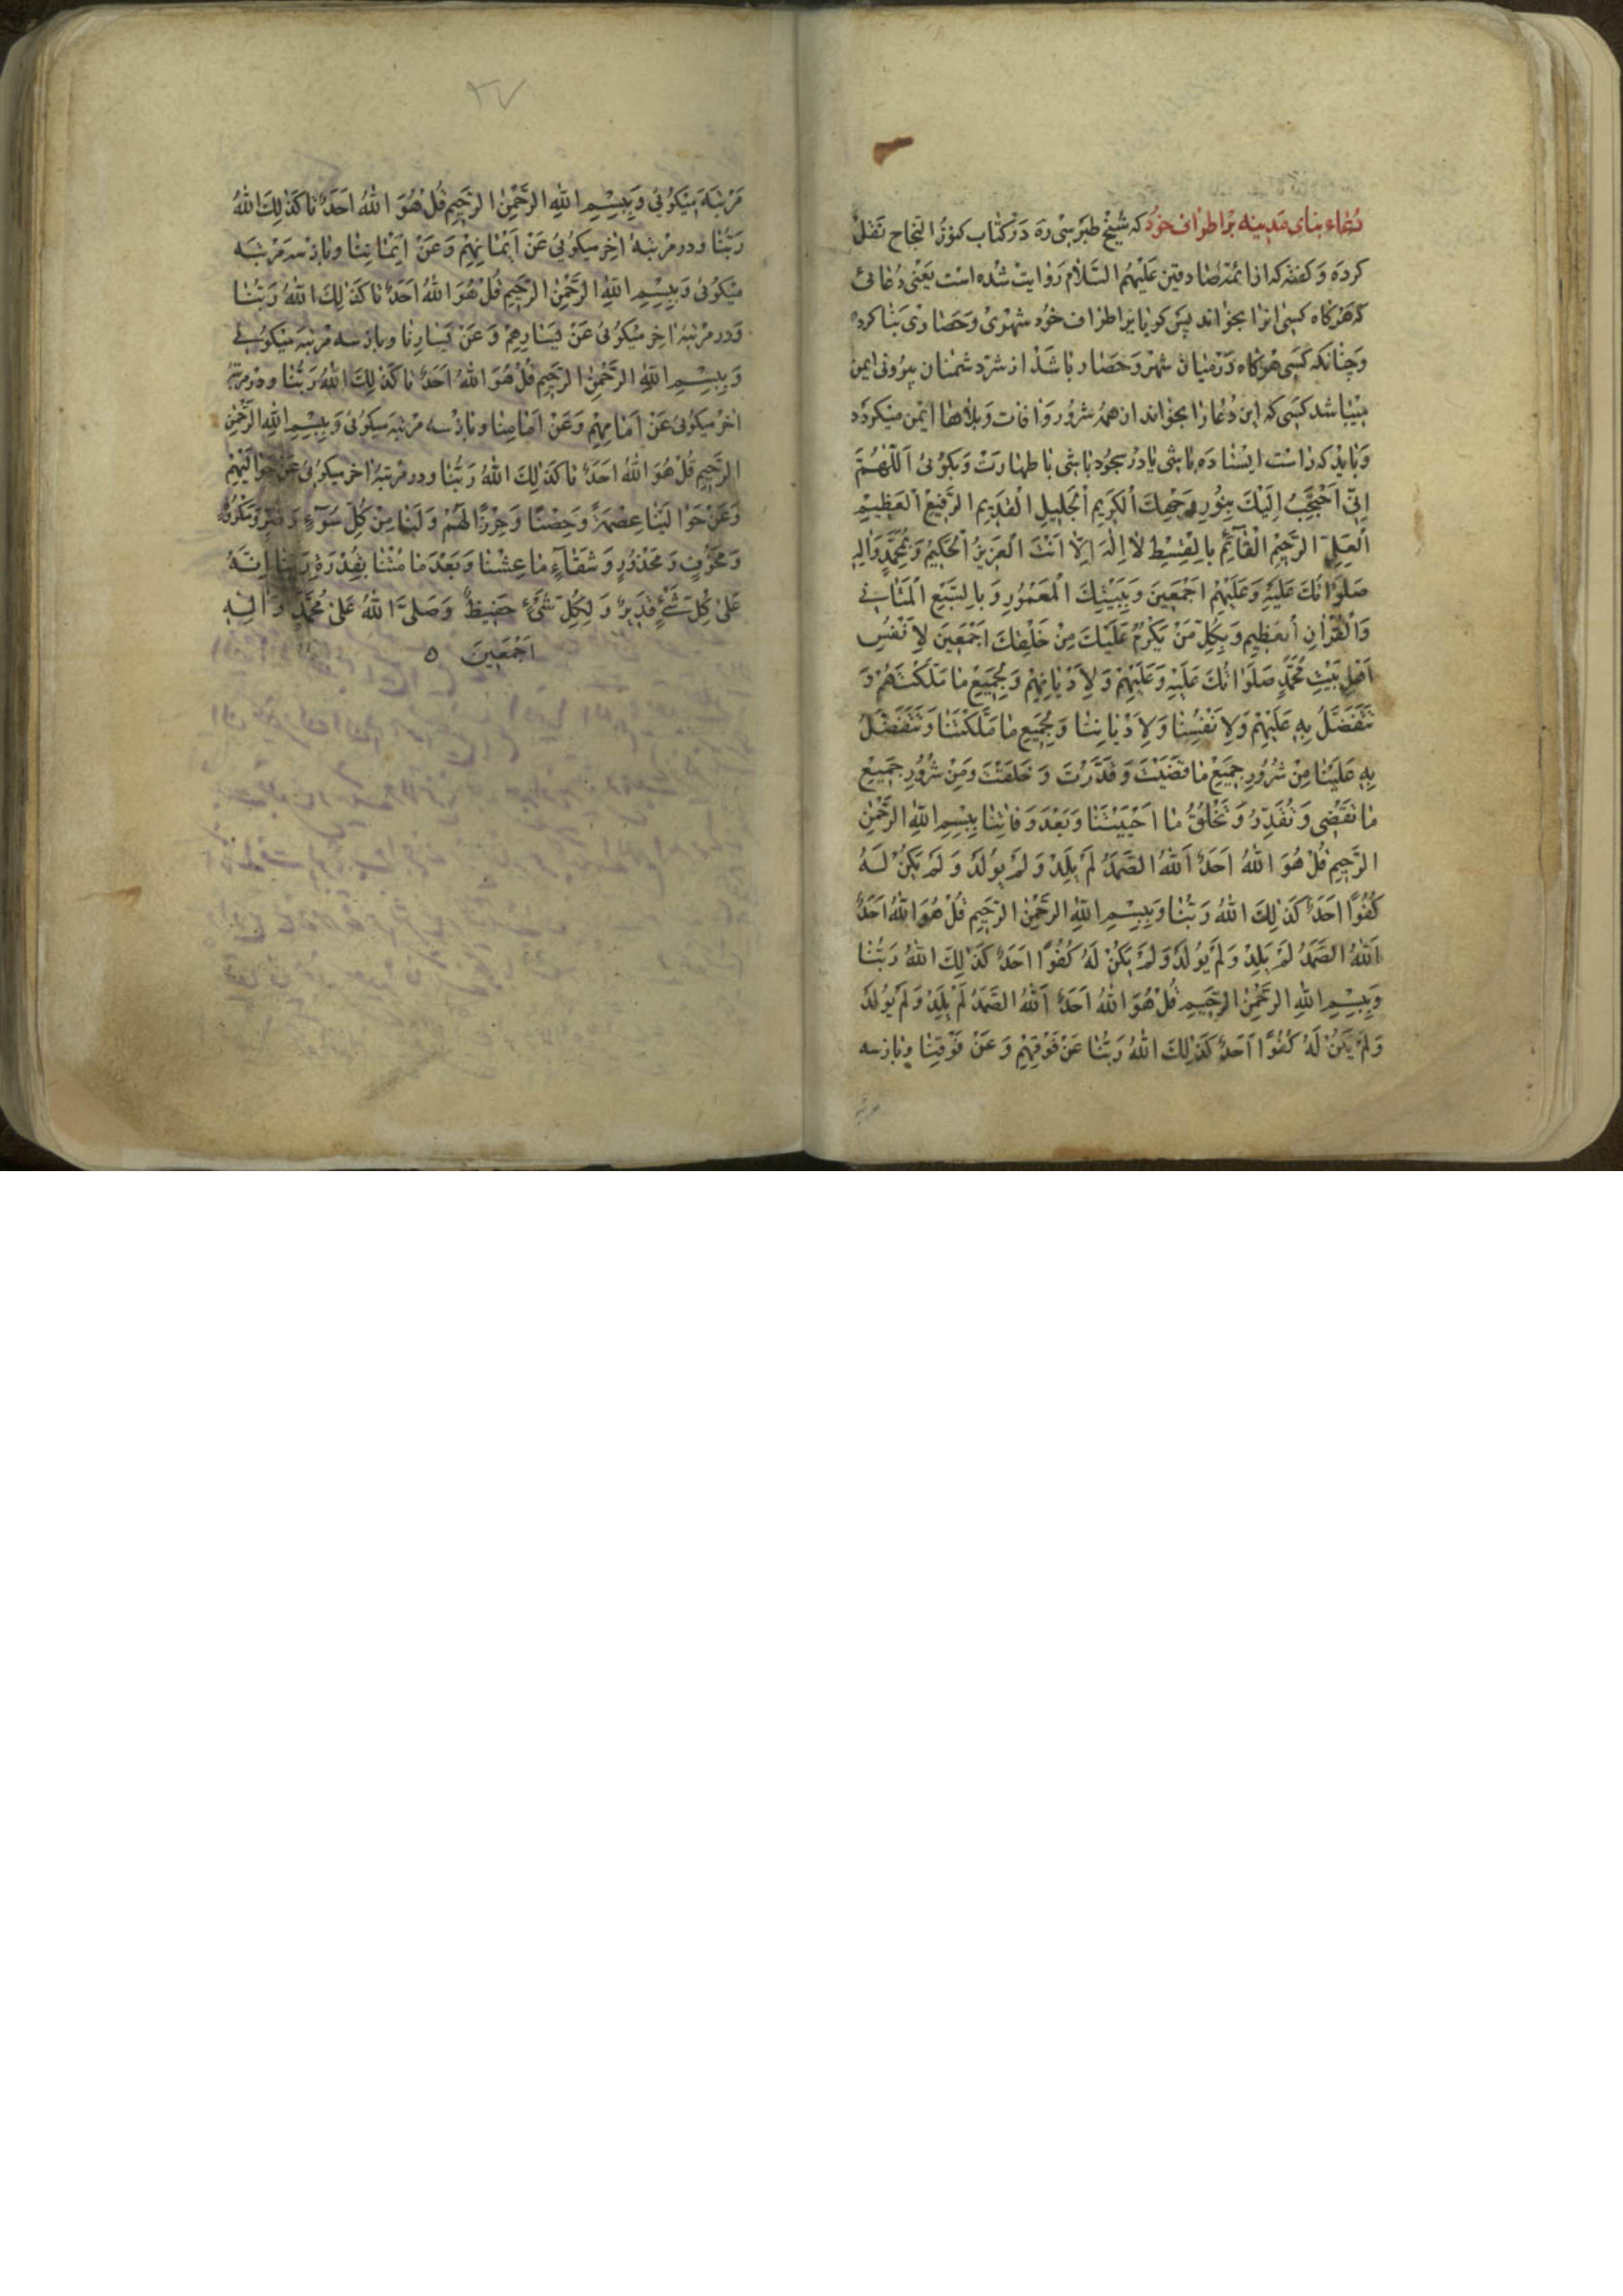 دُعاء بنای مَدینه بَراطراف خود که شیخ طبرسی ره دَر کتاب کنوز النجاح نَقل
کرده و کفته که از ائمّه صادقین عَلَیهِمُ السَّلام روایت شده است یَعنی دُعائی
که هَرکاه کسی انرا بخواند پس کویا بَراطراف خود شهری وَحَصاری بَنا کرده
وَچنانکه کسی هرکاه دَرمیان شهر وَحَصار باشد از شرّ دشمنان بیرونی ایمن
میباشد کسی که این دُعا را بخواند از همه شرور و افات و بلاها ایمن میکردد
وَباید که راست ایستاده باشی یا در سجود باشی با طهارت وَ بکوئی اَللّهُمَّ
اِنّی اَحْتَجِبُ اِلَیْكَ بِنُورِ وَجْهِكَ الْکَریمِ الْجَلیلِ الْقَدیمِ الرَّفیعِ الْعَظیمِ
الْعَلِیِّ الرَّحیمِ الْقآئِمِ بِالْقِسْطِ لا اِلٰهَ اِلّا اَنْتَ الْعَزیزُ الْحَکیمُ وَبِمُحَمَّدٍ وَالِهِ
صَلَواتُكَ عَلَیْهِ وَعَلَیْهِمْ اَجْمَعینَ وَبِبَیْتِكَ الْمَعْمُورِ وَبِالسَّبْعِ الْمَثانی
وَالْقُرْانِ الْعَظیمِ وَبِکُلِّ مَنْ یَکْرُمُ عَلَیْكَ مِنْ خَلْقِكَ اَجْمَعینَ لِاَنْفُسِ
اَهْلِ بَیْتِ مُحَمَّدٍ صَلَواتُكَ عَلَیْهِ وَعَلَیْهِمْ وَلِاَدْیانِهِمْ وَلِجَمیعِ ما مَلَّکْتَهُمْ وَ
تَتَفَضَّلُ بِهِ عَلَیْهِمْ وَلِاَنْفُسِنا وَلِاَدْیانِنا وَلِجَمیعِ ما مَلَّکْتَنا وَتَتَفَضَّلُ
بِهِ عَلَیْنا مِنْ شُرُورِ جَمیعِ ما قَضَیْتَ وَقَدَّرْتَ وَخَلَقْتَ وَمِنْ شُرُورِ جَمیعِ
ما تَقْضی وَتُقَدِّرُ وَتَخْلُقُ ما اَحْیَیْتَنا وَبَعْدَ وَفاتِنا بِبِسْمِ اللهِ الرَّحْمٰنِ
الرَّحیمِ قُلْ هُوَ اللهُ اَحَدٌ اَللهُ الصَّمَدُ لَمْ یَلِدْ وَلَمْ یُولَدْ وَلَمْ یَکُنْ لَهُ
کُفُوًا اَحَدٌ کَذٰلِكَ اللهُ رَبُّنا وَبِبِسْمِ اللهِ الرَّحْمٰنِ الرَّحیمِ قُلْ هُوَ اللهُ اَحَدٌ
اَللهُ الصَّمَدُ لَمْ یَلِدْ وَلَمْ یُولَدْ وَلَمْ یَکُنْ لَهُ کُفُوًا اَحَدٌ کَذٰلِكَ اللهُ رَبُّنا
وَبِبِسْمِ اللهِ الرَّحْمٰنِ الرَّحیمِ قُلْ هُوَ اللهُ اَحَدٌ اَللهُ الصَّمَدُ لَمْ یَلِدْ وَلَمْ یُولَدْ
وَلَمْ یَکُنْ لَهُ کُفُوًا اَحَدٌ کَذٰلِكَ اللهُ رَبُّنا عَنْ فَوْقِهِمْ وَعَنْ فَوْقِنا وباز سه
مرتبه
۲۷
مَرْتبَه میکوئی وَبِبِسْمِ اللهِ الرَّحْمٰنِ الرَّحیمِ قُلْ هُوَ اللهُ اَحَدٌ تا کَذٰلِكَ اللهُ
رَبُّنا ودر مرتبه اخر میکوئی عَنْ اَیْمانِهِمْ وَعَنْ اَیْمانِنا وباز سه مَرْتبَه
میکوئی وَبِبِسْمِ اللهِ الرَّحْمٰنِ الرَّحیمِ قُلْ هُوَ اللهُ اَحَدٌ تا کَذٰلِكَ اللهُ رَبُّنا
وَدر مرتبه اخر میکوئی عَنْ یَسارِهِمْ وَعَنْ یَسارِنا وباز سه مرتبه میکوئی
وَبِبِسْمِ اللهِ الرَّحْمٰنِ الرَّحیمِ قُلْ هُوَ اللهُ اَحَدٌ تا کَذٰلِكَ اللهُ رَبُّنا ودر مرتبه
اخر میکوئی عَنْ اَمامِهِمْ وَعَنْ اَمامِنا وباز سه مرتبه میکوئی وَبِبِسْمِ اللهِ الرَّحْمٰنِ
الرَّحیمِ قُلْ هُوَ اللهُ اَحَدٌ تا کَذٰلِكَ اللهُ رَبُّنا ودر مرتبه اخر میکوئی عَنْ حَوالَیْهِمْ
وَعَنْ حَوالَیْنا عِصْمَةً وَحِصْنًا وَحِرْزًا لَهُمْ وَلَنا مِنْ کُلِّ سُوۤءٍ وَضُرٍّ وَمَکْرُوهٍ
وَمَخُوفٍ وَمَحْذُورٍ وَشَقآءٍ ما عِشْنا وَبَعْدَ ما مُتْنا بِقُدْرَةِ رَبِّنا اِنَّهُ
عَلیٰ کُلِّ شَیْءٍ قَدیرٌ وَلِکُلِّ شَیْءٍ حَفیظٌ وَصَلَّی اللهُ عَلیٰ مُحَمَّدٍ وَالِهِ
اَجْمَعینَ ۵